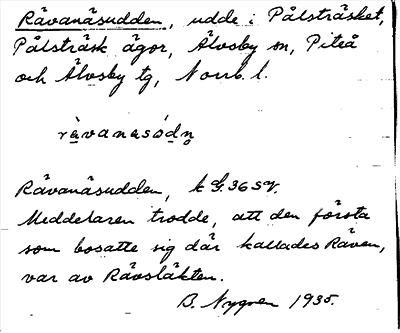 Rävanäsudden, udde i Pålsträsket,
Pålsträsk ägor, Älvsby sn, Piteå
och Älvsby tg, Norrb. l.
rävanasódn̥
Rävanäsudden, k bl. 36 SV.
Meddelaren trodde, att den första
som bosatte sig där kallades Räven,
var av Rävsläkten.
B. Nygren 1935.